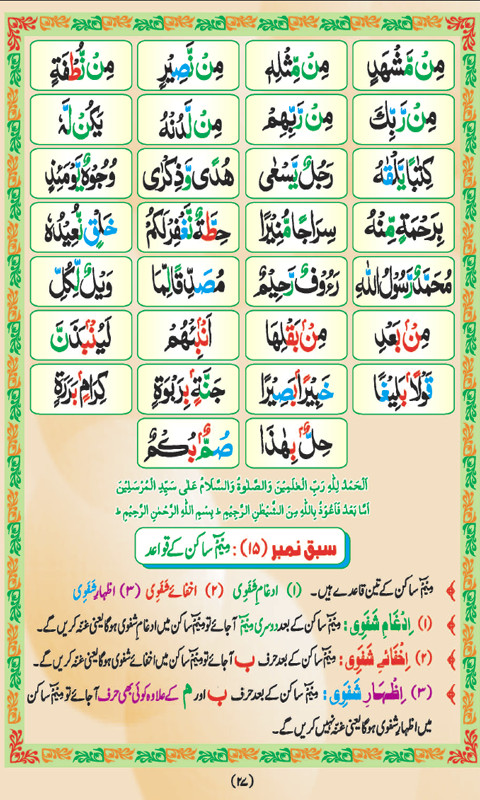 مِنْ مَّشْهَدِ مِنْ مِّثْلِهٖ مِنْ نَّصِيْرٍ مِنْ نُّطْفَةٍ
مِنْ رَّبِّكَ مِنْ رَّبِّهِمْ مِنْ لَّدُنْهُ يَكُنْ لَّهٗ
كِتٰبًا يَّلْقٰىهُ رَجُلٌ يَّسْعٰى هُدًى وَّذِكْرٰى وُجُوْهٌ يَّوْمَئِذٍ
بِرَحْمَةٍ مِّنْهُ سِرَاجًا مُّنِيْرًا حِطَّةٌ نَّغْفِرْلَكُمْ خَلْقٍ نُّعِيْدُهٗ
مُحَمَّدٌ رَّسُوْلُ اللهِ رَءُوْفٌ رَّحِيْمٌ مُصَدِّقًا لِّمَا وَيْلٌ لِّكُلِّ
مِنْۢ بَعْدِ مِنْۢ بَقْلِهَا اَنْۢبِئْهُمْ لَيُنْۢبَذَنَّ
قَوْلًاۢ بَلِيْغًا خَبِيْرًاۢ بَصِيْرًا جَنَّةٍۭ بِرَبْوَةٍ كِرَامٍۭ بَرَرَةٍ
حِلٌّۢ بِهٰذَا صُمٌّۢ بُكْمٌ
اَلْحَمْدُ لِلّٰهِ رَبِّ الْعٰلَمِيْنَ وَالصَّلٰوةُ وَالسَّلَامُ عَلٰى سَيِّدِ الْمُرْسَلِيْنَ
اَمَّا بَعْدُ فَاَعُوْذُ بِاللّٰهِ مِنَ الشَّيْطٰنِ الرَّجِيْمِ ط بِسْمِ اللّٰهِ الرَّحْمٰنِ الرَّحِيْمِ ط
سبق نمبر (۱۵) : میم ساکن کے قواعد
میم ساکن کے تین قاعدے ہیں۔ (۱) ادغامِ شفوی (۲) اخفائے شفوی (۳) اظہارِ شفوی
(۱) اِدْغَامِ شَفَوِی : میم ساکن کے بعد دوسری میم آجائے تو میم ساکن میں ادغامِ شفوی ہوگا یعنی غنہ کریں گے۔
(۲) اِخْفَائے شَفَوِی : میم ساکن کے بعد حرف ب آجائے تو میم ساکن میں اخفائے شفوی ہوگا یعنی غنہ کریں گے۔
(۳) اِظْہَارِ شَفَوِی : میم ساکن کے بعد حرف ب اور م کے علاوہ کوئی بھی حرف آجائے تو میم ساکن
میں اظہارِ شفوی ہوگا یعنی غنہ نہیں کریں گے۔
(۲۷)